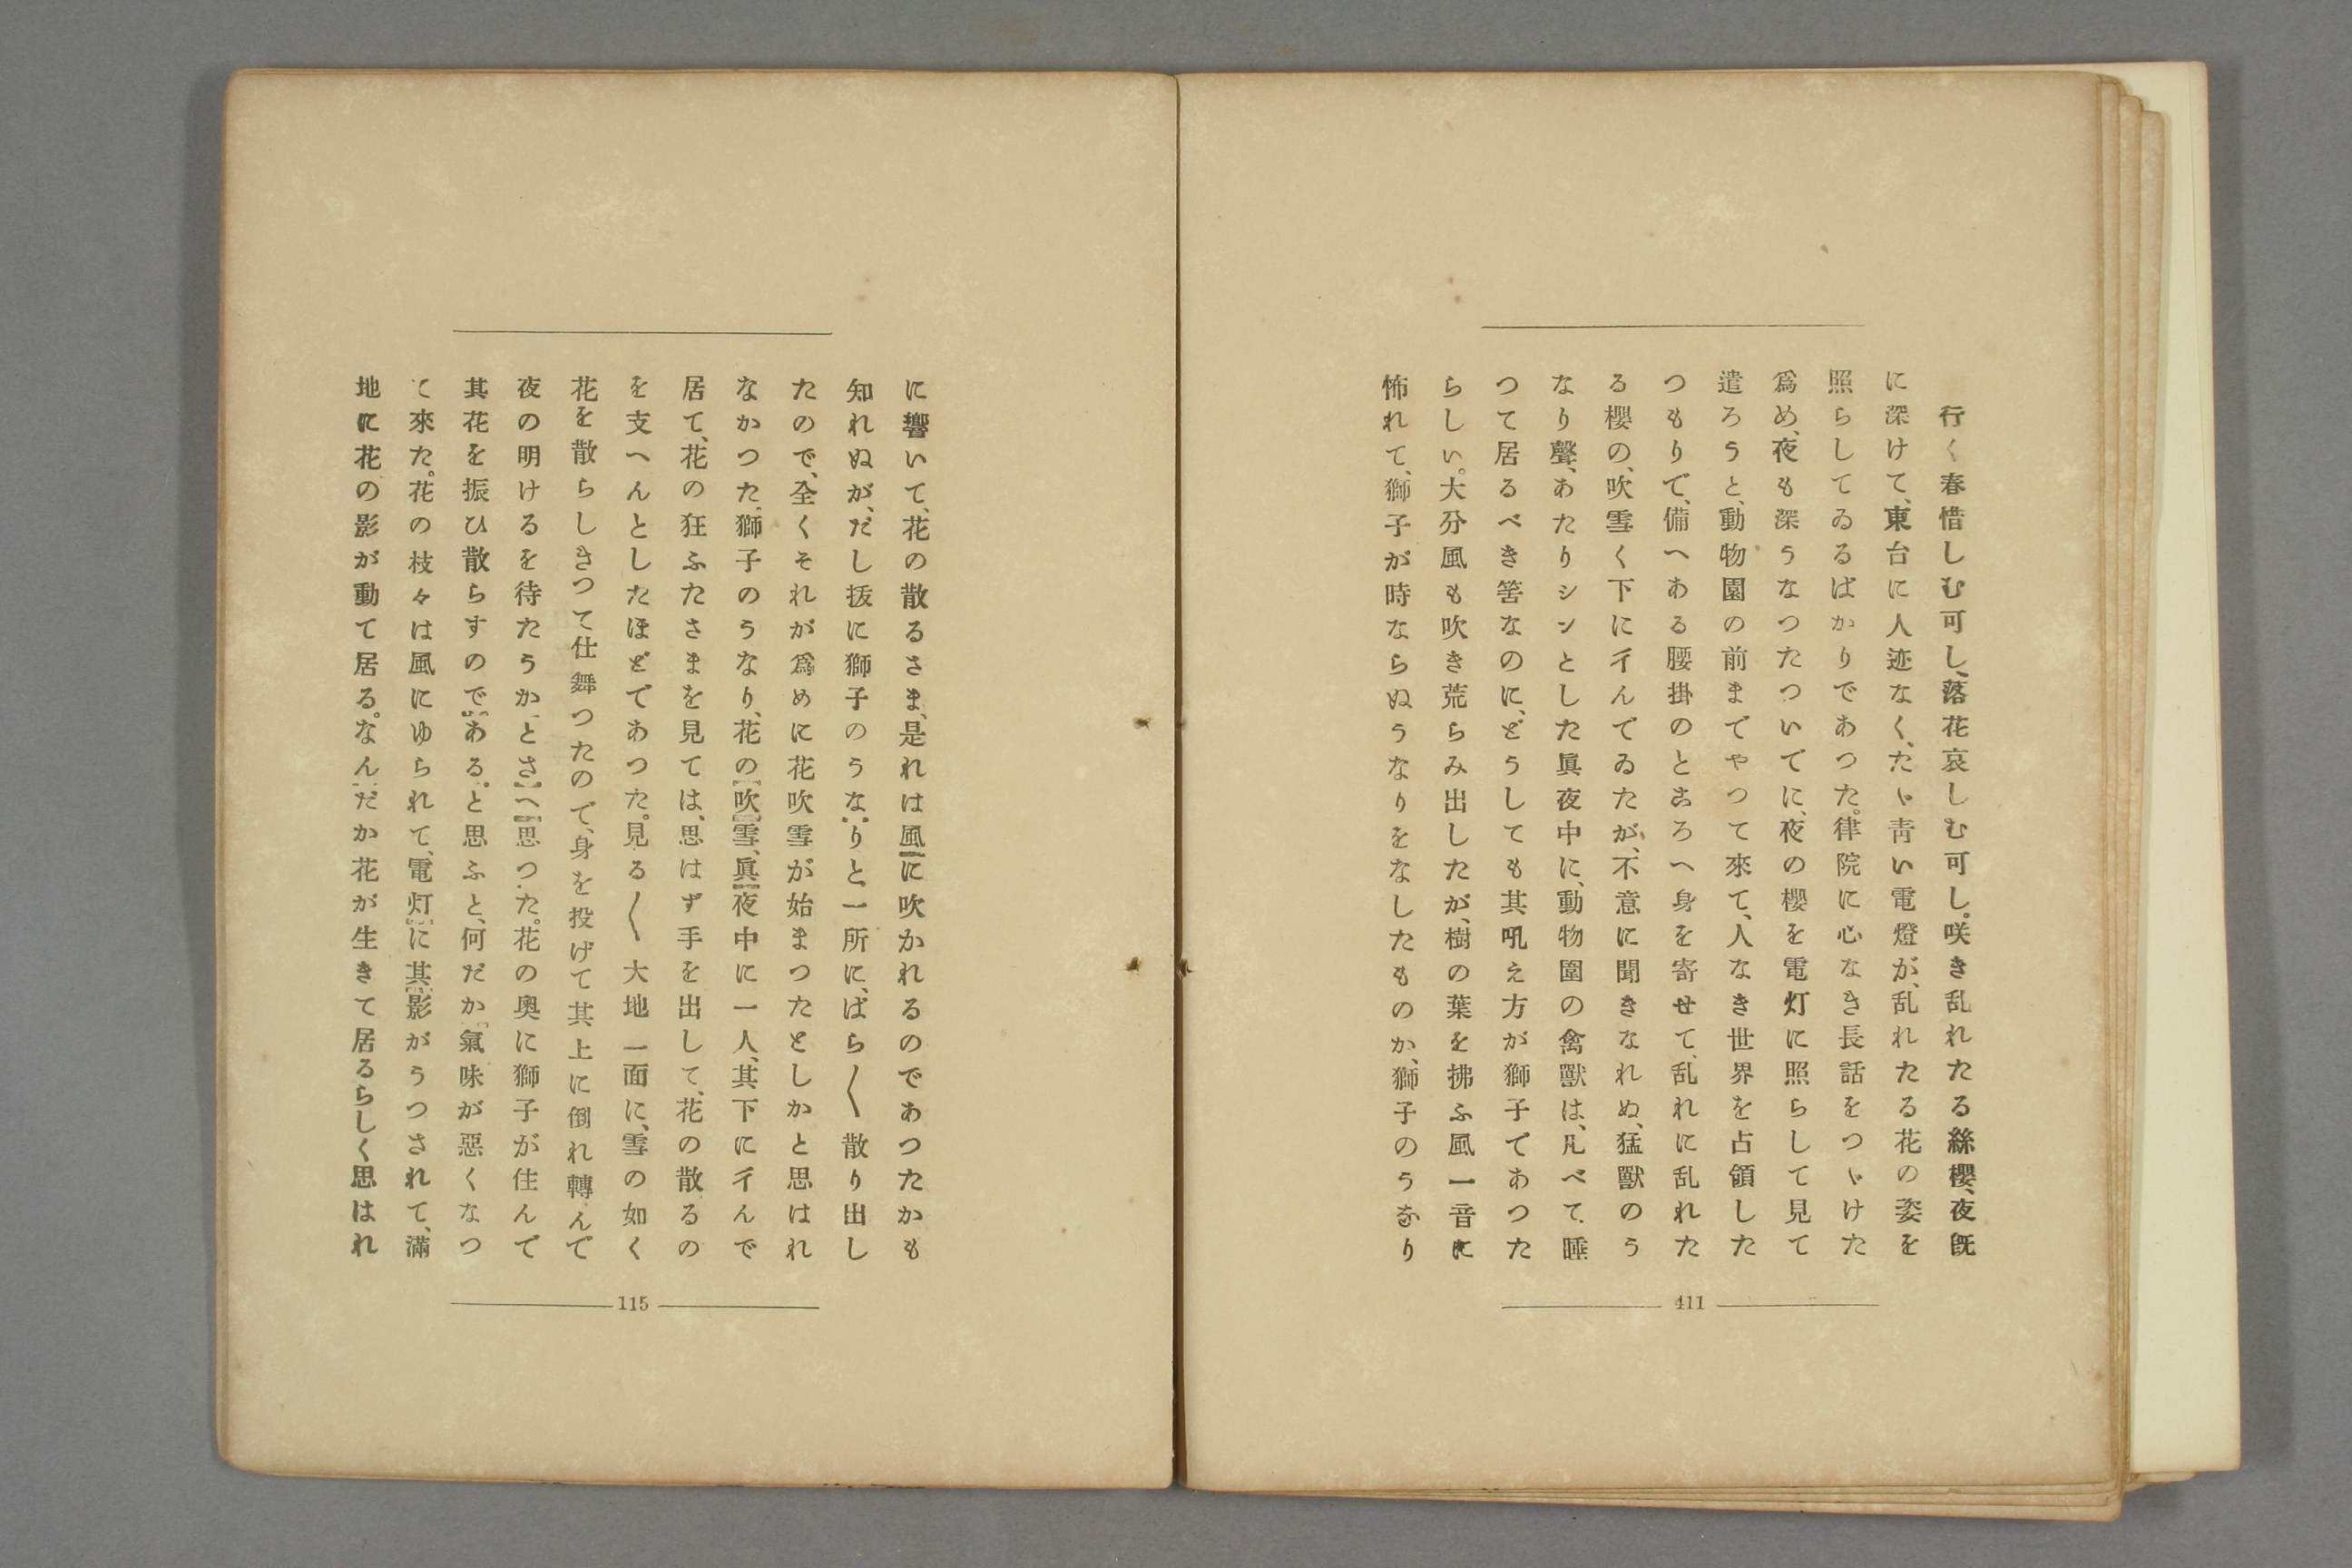 行く春惜しむ可し、落花哀しむ可し。咲き乱れたる絲櫻、夜既
に深けて、東台に人迹なく、たゞ靑い電燈が、乱れたる花の姿を
照らしてゐるばかりであつた。律院に心なき長話をつゞけた
爲め、夜も深うなつたついでに、夜の櫻を電灯に照らして見て
遣ろうと、動物園の前までやつて來て、人なき世界を占領した
つもりで、備へある腰掛のところへ身を寄せて、乱れに乱れた
る櫻の、吹雪く下に彳んでゐたが、不意に聞きなれぬ、猛獸のう
なり聲、あたりシンとした眞夜中に、動物園の禽獸は、凡べて睡
つて居るべき筈なのに、どうしても其吼え方が獅子であつた
らしい。大分風も吹き荒らみ出したが、樹の葉を拂ふ風一音に
怖れて、獅子が時ならぬうなりをなしたものか、獅子のうなり
411
に響いて、花の散るさま、是れは風に吹かれるのであつたかも
知れぬが、だし抜に獅子のうなりと、一所に、ばら〳〵散り出し
たので、全くそれが爲めに花吹雪が始まつたとしかと思はれ
なかつた。獅子のうなり、花の吹雪、眞夜中に一人、其下に彳んで
居て、花の狂ふたさまを見ては、思はず手を出して、花の散るの
を支へんとしたほどであつた。見る〳〵大地一面に、雪の如く
花を散らしきつて仕舞つたので、身を投げて其上に倒れ轉んで
夜の明けるを待たうか、とさへ思つた。花の奧に獅子が住んで
其花を振ひ散らすのである。と思ふと、何だか氣味が惡くなつ
て來た。花の枝々は風にゆられて、電灯に其影がうつされて、滿
地に花の影が動て居る。なんだか花が生きて居るらしく思はれ
115